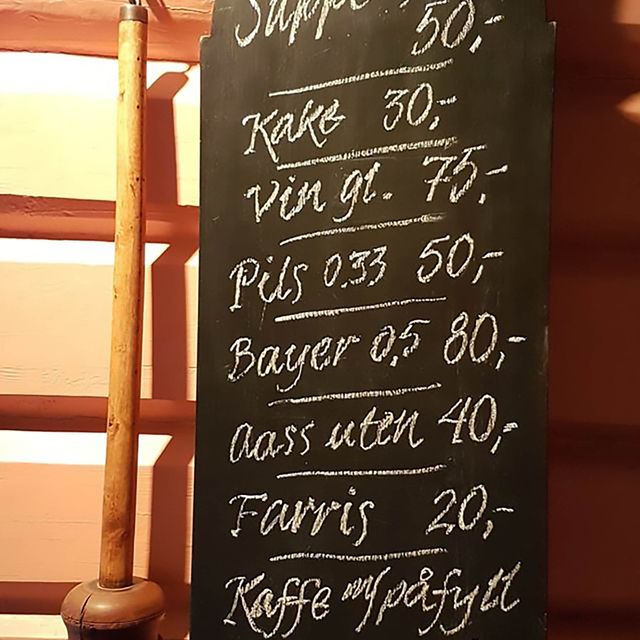 Suppe
50,-
Kake 30,-
Vin gl. 75,-
Pils 0.33 50,-
Bayer 0,5 80,-
Aass uten 40,-
Farris 20,-
Kaffe m/påfyll